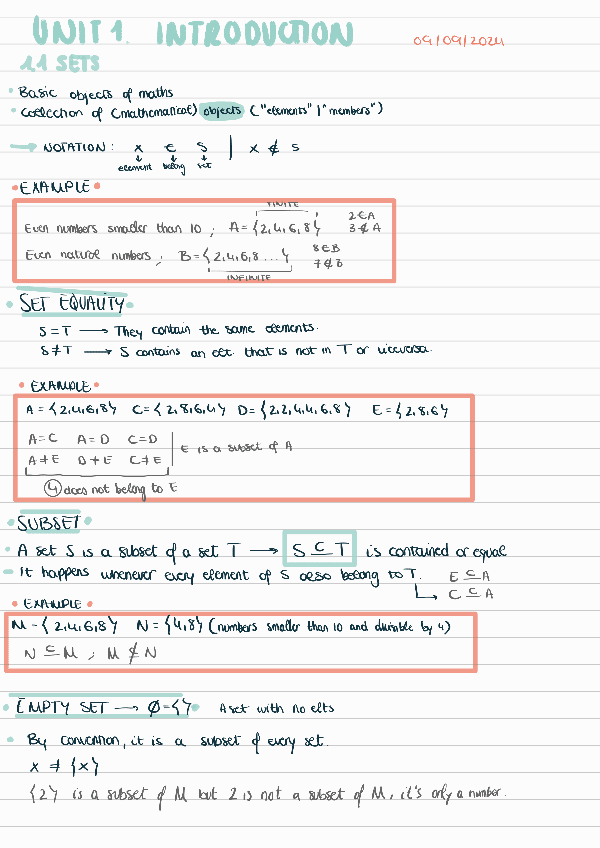 UNIT 1. INTRODUCTION
09/09/2024
1.1 SETS
Basic objects of maths
Collection of (mathematical) objects ("elements" / "members")
NOTATION: x ∈ S | x ∉ S
element belong set
EXAMPLE
FINITE
Even numbers smaller than 10; A={2,4,6,8} 2∈A
3∉A
Even natural numbers; B={2,4,6,8...} 8∈B
7∉B
INFINITE
SET EQUALITY
S=T → They contain the same elements.
S≠T → S contains an elt. that is not in T or viceversa.
EXAMPLE
A={2,4,6,8} C={2,8,6,4} D={2,2,4,4,6,8} E={2,8,6}
A=C A=D C=D
E is a subset of A
A≠E D≠E C≠E
4 does not belong to E
SUBSET
A set S is a subset of a set T → S ⊆ T is contained or equal
It happens whenever every element of S also belong to T. E ⊆ A
C ⊆ A
EXAMPLE
M={2,4,6,8} N={4,8} (numbers smaller than 10 and divisible by 4)
N ⊆ M ; M ⊈ N
EMPTY SET → Ø={} A set with no elts
By convention, it is a subset of every set.
x ≠ {x}
{2} is a subset of M but 2 is not a subset of M, it's only a number.